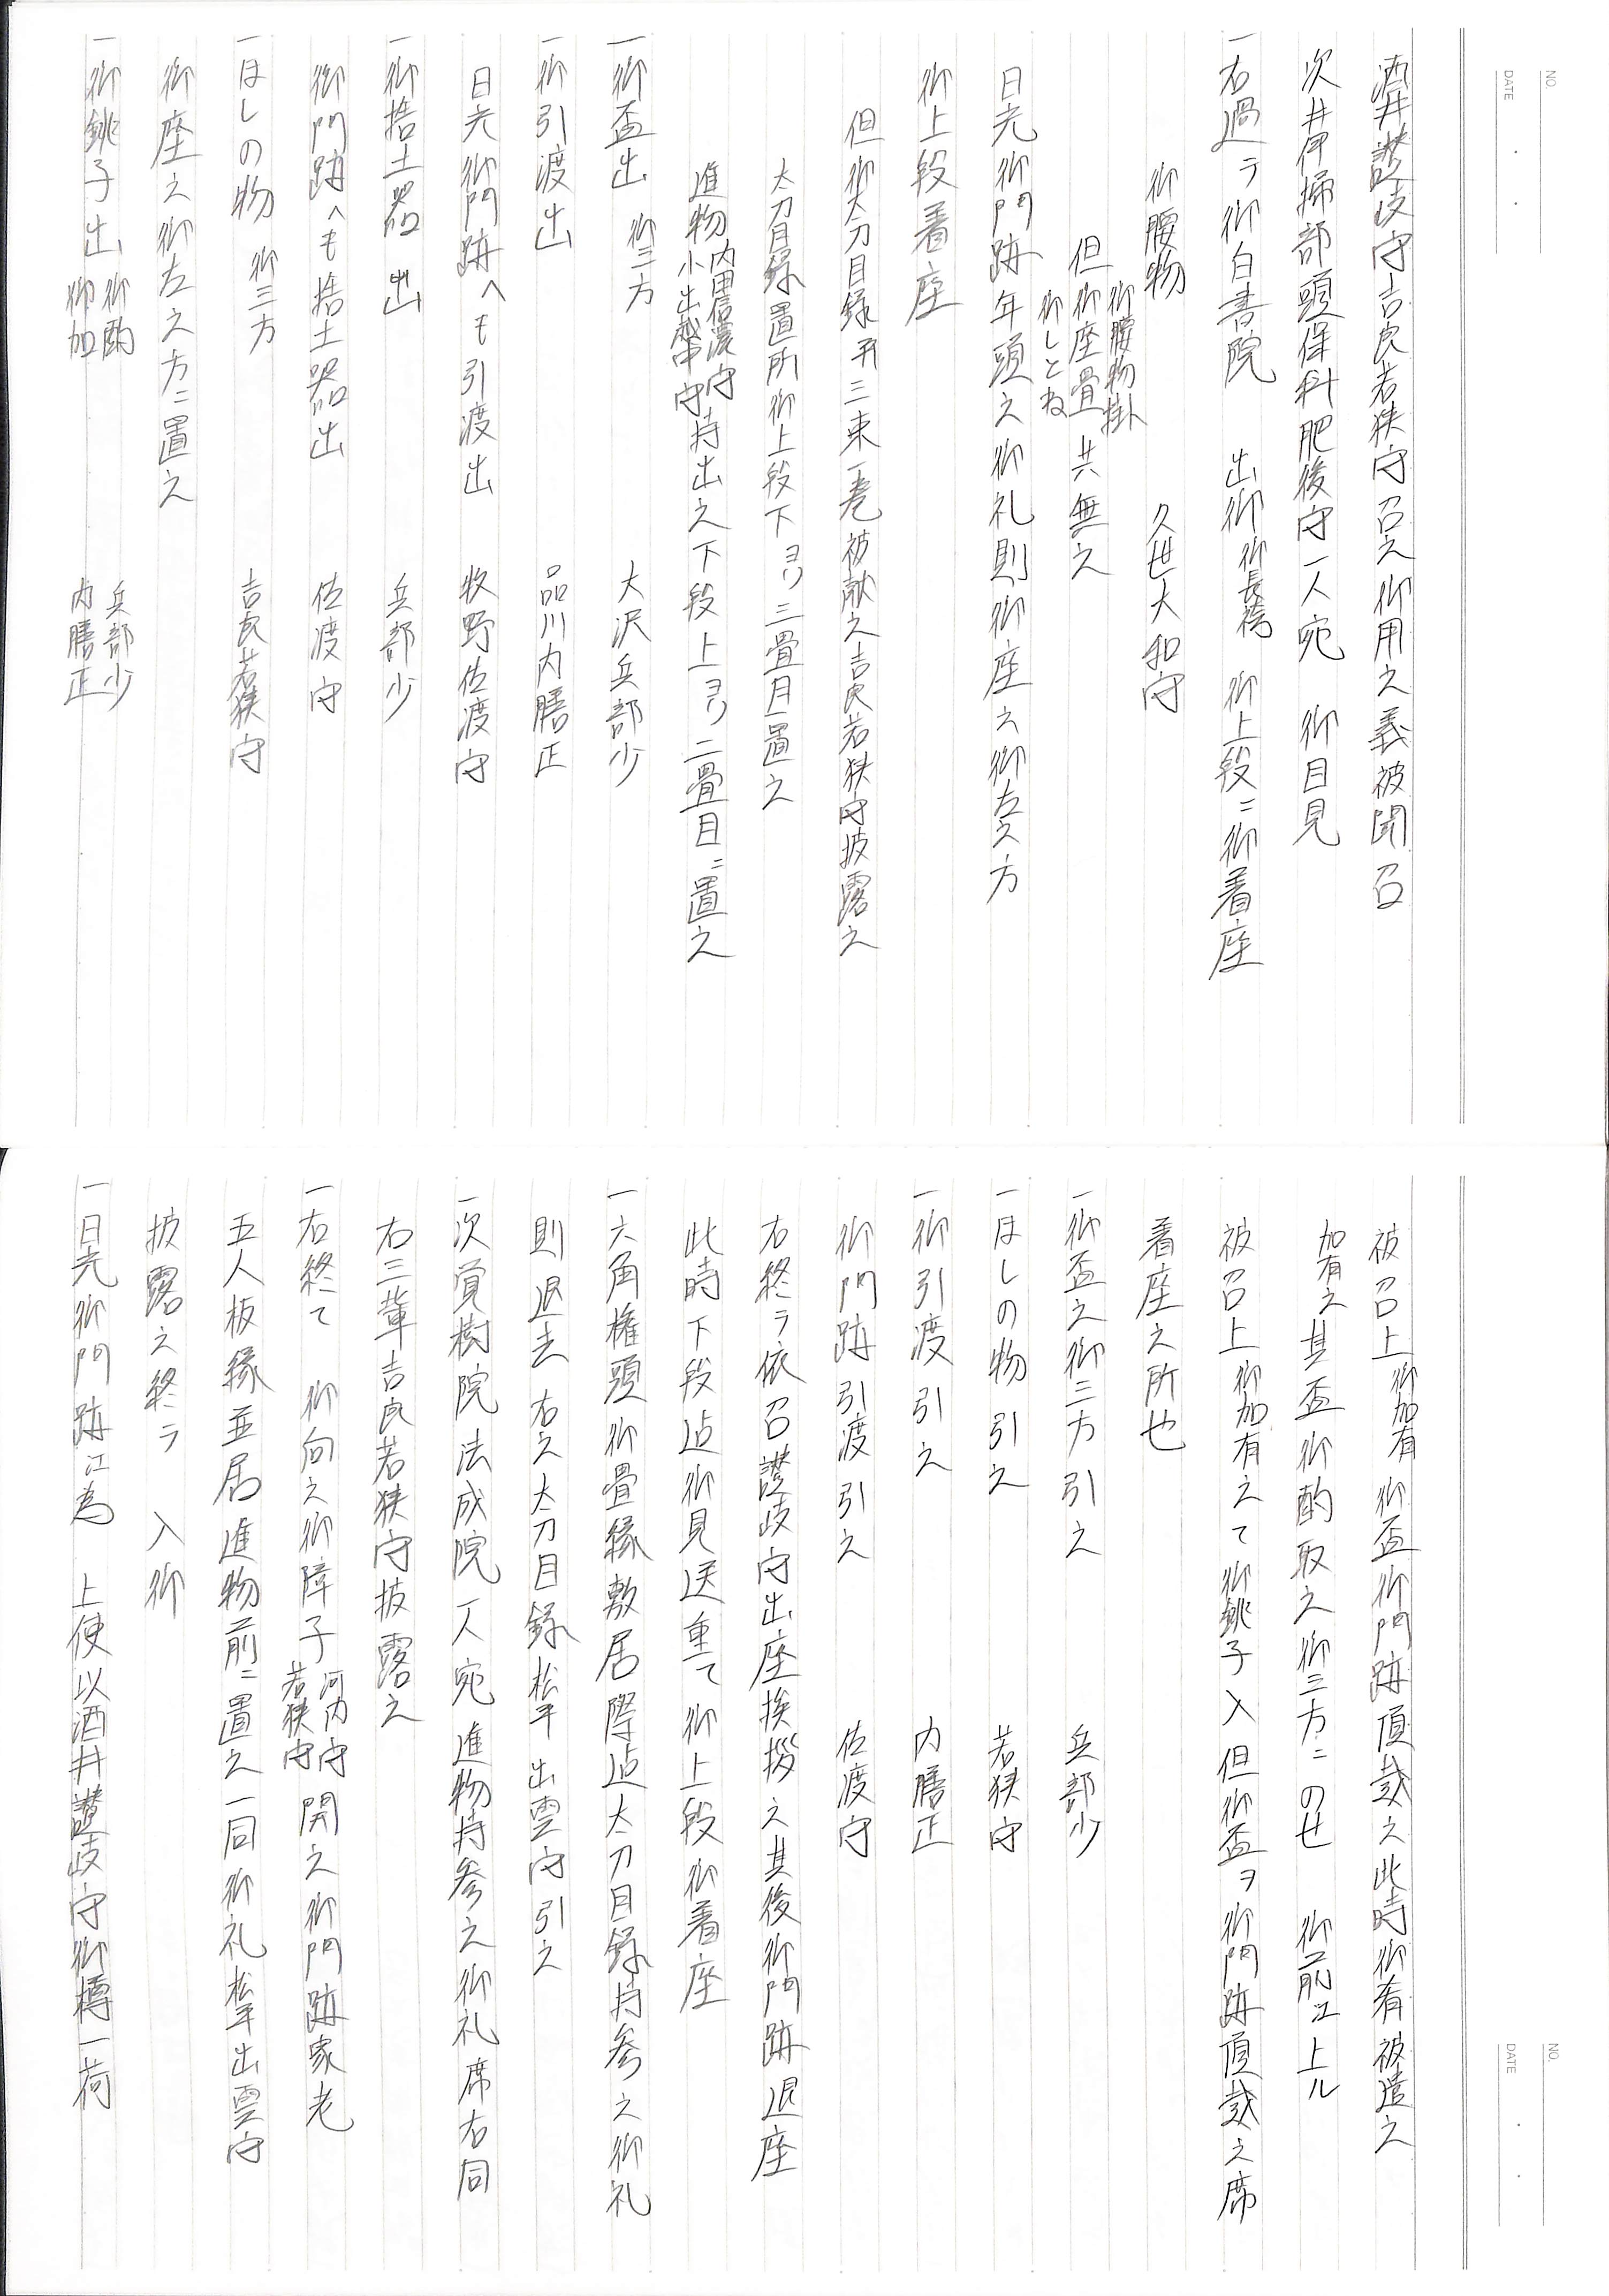 NO.
DATE
酒井讃岐守吉良若狭守召之御用之義被聞召
次井伊掃部頭保科肥後守一人宛 御目見
一右過テ御白書院 出御 御長袴 御上段ニ御着座
御腰物 久世大和守
御腰物掛
但 御座畳 共無之
御しとね
日光御門跡年頭之御礼則御座之御左之方
御上段着座
但御太刀目録并三束一巻被献之吉良若狭守披露之
太刀目録置所御上段下ヨリ三畳目置之
進物 内田信濃守 小出越中守 持出之下段上ヨリ二畳目ニ置之
一御盃出 御三方 大沢兵部少
一御引渡出 品川内膳正
日光御門跡へも引渡出 牧野佐渡守
一御捨土器出 兵部少
御門跡へも捨土器出 佐渡守
一ほしの物 御三方 吉良若狭守
御座之御左之方ニ置之
一御銚子出 御酌 兵部少
御加 内膳正
NO.
DATE
被召上御加有 御盃御門跡頂戴之此時御肴被遣之
加有之其盃御酌取之御三方ニのせ 御前江上ル
被召上御加有之て御銚子入但御盃ヲ御門跡頂戴之席
着座之所也
一御盃之御三方引之 兵部少
一ほしの物引之 若狭守
一御引渡引之 内膳正
御門跡引渡引之 佐渡守
右終テ依召讃岐守出座挨拶之其後御門跡退座
此時下段迠御見送重て御上段御着座
一六角権頭御畳縁敷居際迠太刀目録持参之御礼
則退去 右之太刀目録松平出雲守引之
一次覚樹院法成院一人宛進物持参之御礼席右同
右三輩吉良若狭守披露之
一右終て 御向之御障子 河内守 若狭守 開之御門跡家老
五人板縁並居進物前ニ置之一同御礼松平出雲守
披露之終テ 入御
一日光御門跡江為 上使以酒井讃岐守御樽一荷